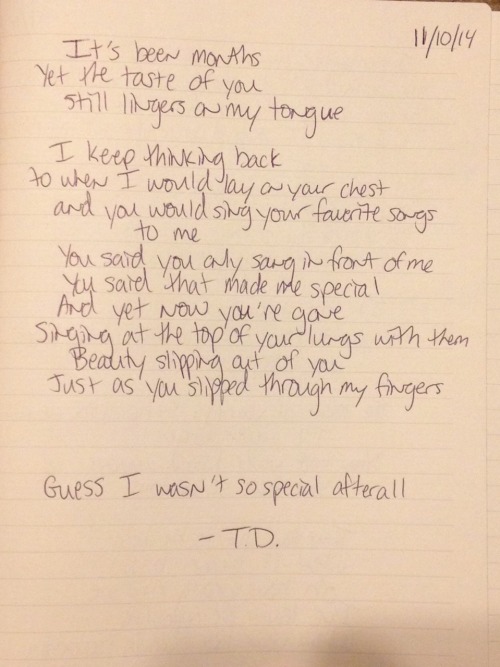 11/10/14
It's been months
Yet the taste of you
still lingers on my tongue
I keep thinking back
to when I would lay on your chest
and you would sing your favorite songs
to me
You said you only sang in front of me
You said that made me special
And yet now you're gone
Singing at the top of your lungs with them
Beauty slipping out of you
Just as you slipped through my fingers
Guess I wasn't so special afterall
- T.D.